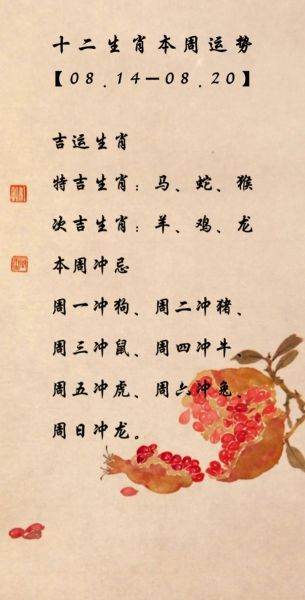 十二生肖本周运势
【08.14—08.20】
吉运生肖
特吉生肖：马、蛇、猴
次吉生肖：羊、鸡、龙
本周冲忌
周一冲狗、周二冲猪、
周三冲鼠、周四冲牛
周五冲虎、周六冲兔、
周日冲龙。